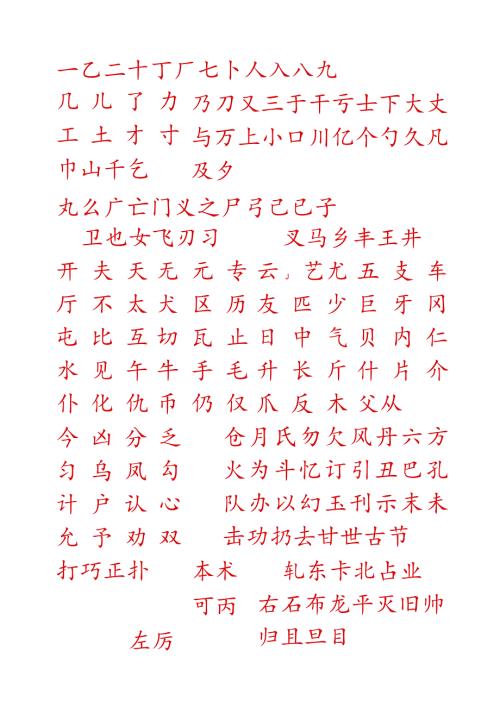 一乙二十丁厂七卜人入八九
几 儿 了 力 乃刀又三于干亏士下大丈
工 土 才 寸 与万上小口川亿个勺久凡
巾山千乞 及夕
丸么广亡门义之尸弓己已子
卫也女飞刃习 叉马乡丰王井
开 夫 天 无 元 专 云 」 艺 尤 五 支 车
厅 不 太 犬 区 历 友 匹 少 巨 牙 冈
屯 比 互 切 瓦 止 日 中 气 贝 内 仁
水 见 午 牛 手 毛 升 长 斤 什 片 介
仆 化 仇 币 仍 仅 爪 反 木 父从
今 凶 分 乏 仓月氏勿欠风丹六方
匀 乌 凤 勾 火为斗忆订引丑巴孔
计 户 认 心 队办以幻玉刊示末未
允 予 劝 双 击功扔去甘世古节
打巧正扑 本术 轧东卡北占业
可丙 右石布龙平灭旧帅
左厉 归且旦目